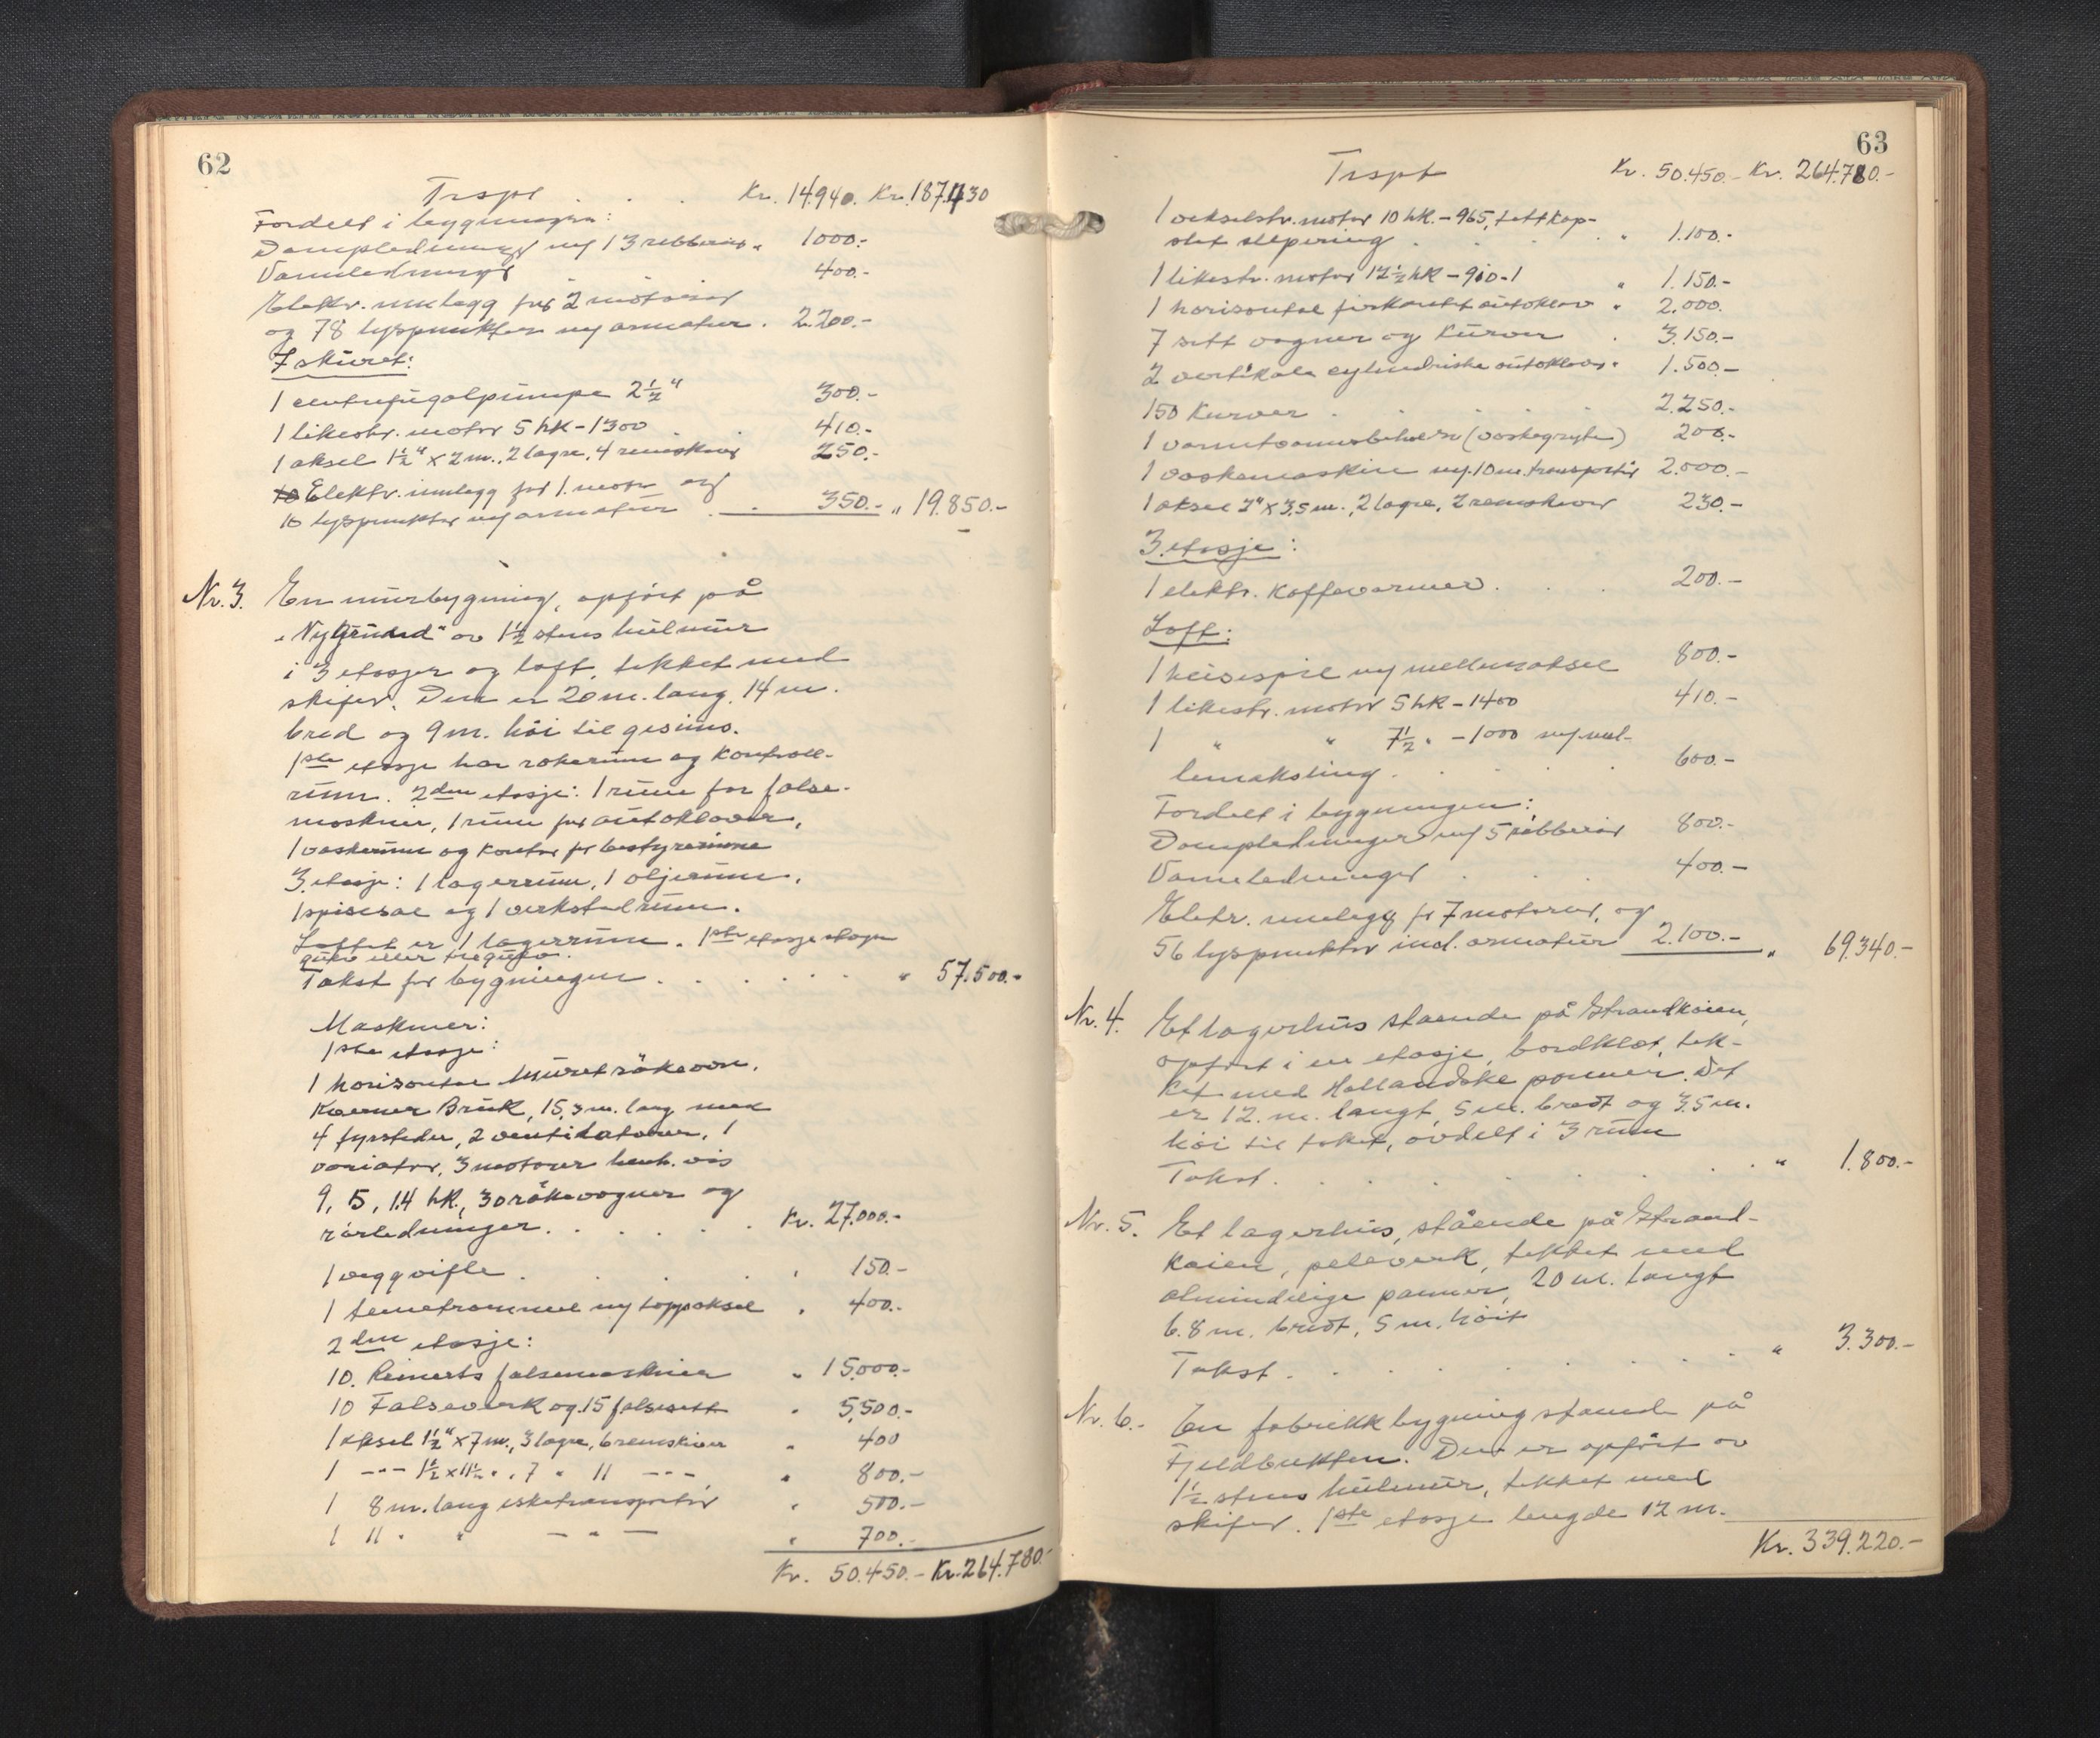 62
Trspt . . . Kr. 14.940. Kr. 187.430
Fordelt i bygningen:
Dampledninger m/ 13 ribberør " 1000.-
Vannledninger " 400.-
Elektr. innlegg for 2 motorer
og 78 lyspunkter m/ armatur . 2.200.-
I skuret:
1 centrifugalpumpe 2½" 300.-
1 likestr. motor 5 hk - 1300 . 410.-
1 aksel 1½" x 2 m., 2 lagre, 4 remskiver 250.-
Elektr. innlegg for 1. motor og
10 lyspunkter m/ armatur . . 350.- " 19.850.-
Nr. 3. En murbygning, opført på
"Ny Grund" av 1½ stens hulmur
i 3 etasjer og loft, tekket med
skifer. Den er 20 m. lang, 14 m.
bred og 9 m. höi til gesims.
1ste etasje har rökerum og kontroll-
rum. 2den etasje: 1 rum for false-
maskiner, 1 rum for autoklaver,
1 vaskerum og kontor for bestyrerinne
3. etasje: 1 lagerrum, 1 oljerum,
1 spisesal og 1 verkstedrum.
Loftet er 1 lagerrum. 1ste etasje
gulv eller tregulv.
Takst for bygningen . . . . . " 57.500.-
Maskiner:
1ste etasje:
1 horisontal muret rökeovn,
Kværner Bruk, 15,3 m. lang med
4 fyrsteder, 2 ventilatorer, 1
variator, 3 motorer henh.vis
9, 5, 1.4 hk., 30 rökevogner og
rörledninger . . . . . Kr. 27.000.-
1 veggvifte . . . . " 150.-
1 tenetrommel m/ toppaksel " 400.-
2den etasje:
10. Reinerts falsemaskiner " 15.000.-
10 Falseverk og 15 falsesett " 5.500.-
1 aksel 1½" x 7 m., 3 lagre, 6 remskiver " 400
1 -"- 1½ x 11½ " . 7 " 11 -"- " 800.-
1 8 m. lang esketransportör " 500.-
1 11 " " - " - " 700.-
Kr. 50.450.- Kr. 264.780.-
63
Trspt Kr. 50.450.- Kr. 264.780.-
1 vekselstr. motor 10 hk. - 965, tett kap-
slet slepering . . . . " 1.100.-
1 likestr. motor 12½ hk - 910-1 " 1.150.-
1 horisontal firkantet autoklav " 2.000.
7 sett vogner og kurver . 3.150.-
2 vertikale cylindriske autoklaver " 1.500.-
150 Kurver . . . . . 2.250.-
1 varmtvannsbeholder (vaskegryte) 200.-
1 vaskemaskin m/ 10 m. transportör 2.000.-
1 aksel 2" x 3,5 m., 2 lagre, 2 remskiver 230.-
3. etasje:
1 elektr. kaffevarmer . . . 200.-
Loft:
1 heisespil m/ mellemaksel 800.-
1 likestr. motor 5 hk - 1400 410.-
1 " " 7½ " - 1000 m/ mel-
lemaksling . . . . . 600.-
Fordelt i bygningen:
Dampledninger m/ 5 ribberör 800.-
Vannledninger . . . 400.-
Elektr. innlegg for 7 motorer, og
56 lyspunkter incl. armatur 2.100.- " 69.340.-
Nr. 4. Et lagerhus staende på Strandkaien,
opfört i en etasje, bordklæt, tek-
ket med Hollandske panner. Det
er 12. m. langt, 5 m. bredt og 3,5 m.
höi til taket, avdelt i 3 rum
Takst . . . . . . " 1.800.-
Nr. 5. Et lagerhus, stående på Strand-
kaien, peleverk, tekket med
almindelige panner, 20 m. langt
6.8 m. bredt, 5 m. höit
Takst . . . . . . " 3.300.-
Nr. 6. En fabrikkbygning staende på
Fjeldbukten. Den er opfört av
1½ stens hulmur, tekket med
skifer. 1ste etasje lengde 12 m.
Kr. 339.220.-